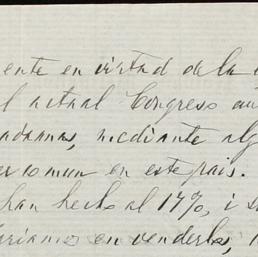 ente en virtud de la
l actual Congreso au
adamas, mediante alg
er comun en este pais.
han hecho al 14%, i s
ariamos en venderlos,